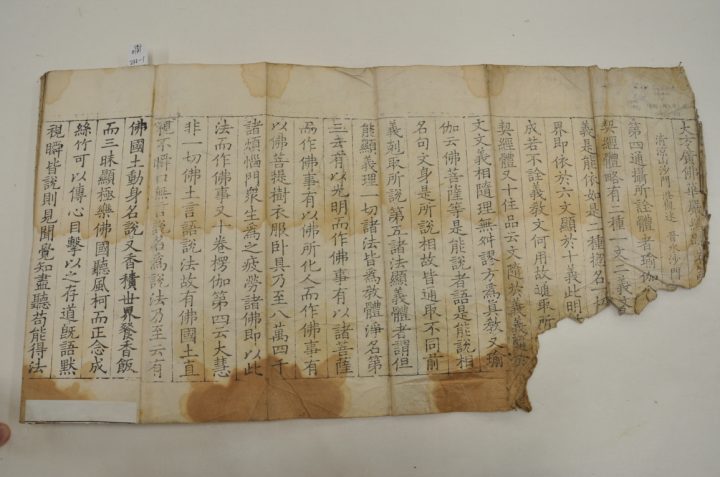 大方廣佛華嚴
清涼山沙門澄觀述 晉水沙門
第四通攝所詮體者瑜伽
契經體略有二種一文二義文
義是能依如是二種揔名一切
界即依於六文顯於十義此明
成若不詮義教文何用故通取所
契經體又十住品云文隨於義義隨於
文文義相隨理無舛謬方為真教又瑜
伽云佛菩薩等是能說者語是能說相
名句文身是所說相故皆通取不同前
義剋取所說第五諸法顯義體者謂但
能顯義理一切諸法皆為教體淨名第
三云有以光明而作佛事有以諸菩薩
而作佛事有以佛所化人而作佛事有
以佛菩提樹衣服卧具乃至八萬四千
諸煩惱門衆生為之疲勞諸佛即以此
法而作佛事又十卷楞伽第四云大慧
非一切佛土言語說法故有佛國土直
視不瞬口無言說名為說法乃至云有
佛國土動身名說又香積世界餐香飯
而三昧顯極樂佛國聽風柯而正念成
絲竹可以傳心目擊以之存道旣語默
視瞬皆說則見聞覺知盡聽苟能得法